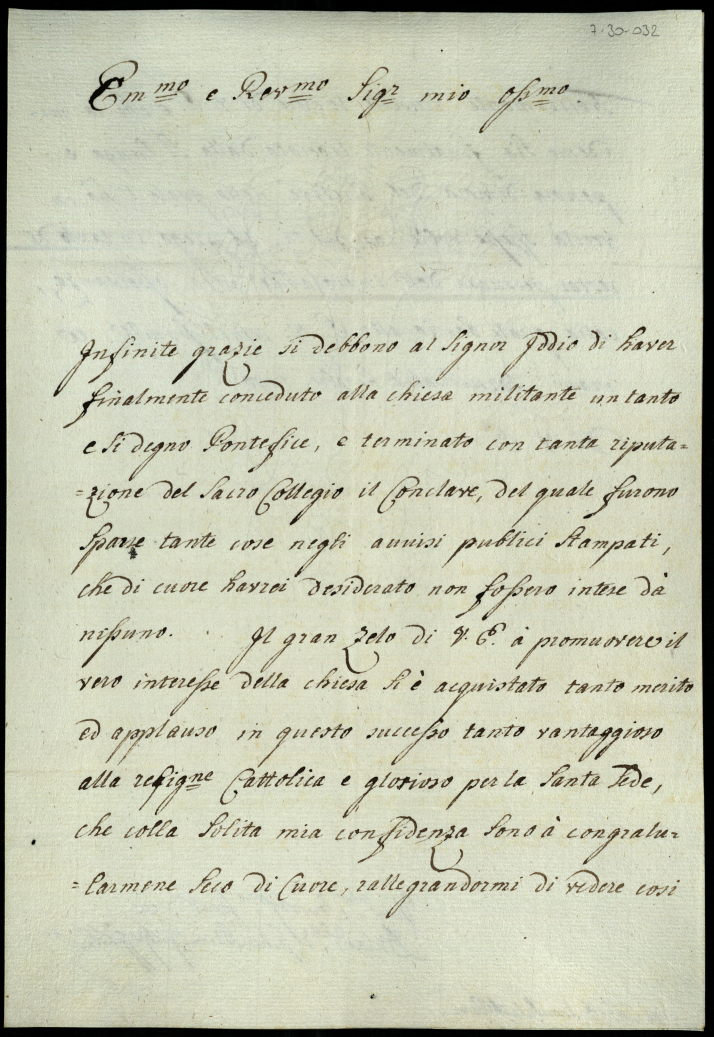 7-30-032
Em.mo e Rev.mo Sig.r mio oss.mo
Infinite grazie si debbono al Signor Iddio di haver
finalmente conceduto alla chiesa militante un tanto
e si degno Pontefice, e terminato con tanta riputa=
=zione del Sacro Collegio il Conclave, del quale furono
sparse tante cose negli auuisi publici stampati,
che di cuore havrei desiderato non fossero intese dà
nissuno. Il gran zelo di V. E. à promuovere il
vero interesse della chiesa si è acquistato tanto merito
ed applauso in questo successo tanto vantaggioso
alla religne Cattolica e glorioso per la Santa Sede,
che colla solita mia confidenza sono à congralu=
=larmene seco di Cuore, rallegrandormi di vedere cosi